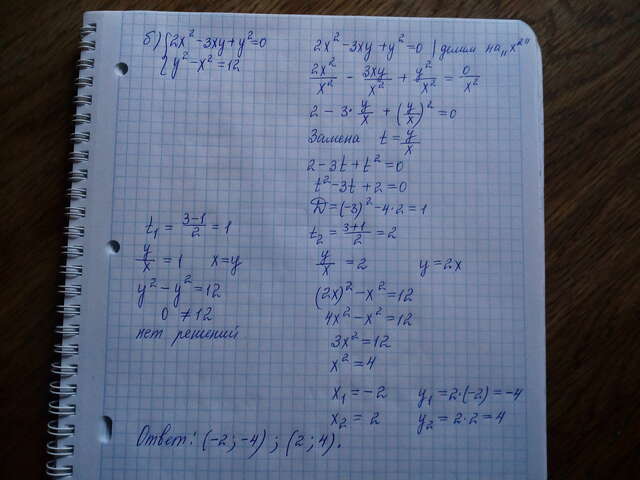 б) {2x² - 3xy + y² = 0
{y² - x² = 12
2x² - 3xy + y² = 0 | делим на „x²"
2x²/x² - 3xy/x² + y²/x² = 0/x²
2 - 3·y/x + (y/x)² = 0
Замена t = y/x
2 - 3t + t² = 0
t² - 3t + 2 = 0
D = (-3)² - 4·2 = 1
t₁ = (3-1)/2 = 1
t₂ = (3+1)/2 = 2
y/x = 1 x = y
y² - y² = 12
0 ≠ 12
нет решений
y/x = 2 y = 2x
(2x)² - x² = 12
4x² - x² = 12
3x² = 12
x² = 4
x₁ = -2 y₁ = 2·(-2) = -4
x₂ = 2 y₂ = 2·2 = 4
Ответ: (-2; -4) ; (2; 4).